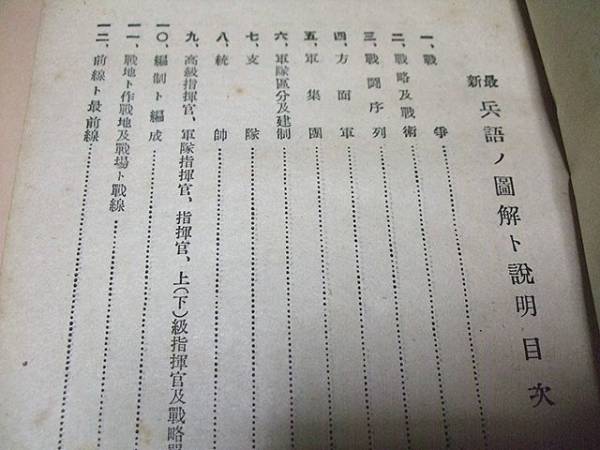 最新 兵語ノ圖解ト說明目次
一、戰爭
二、戰略及戰術
三、戰鬪序列
四、方面軍
五、軍集團
六、軍隊區分及建制
七、支隊
八、統帥
九、高級指揮官、軍隊指揮官、指揮官、上(下)級指揮官及戰略單
一〇、編制ト編成
一一、戰地ト作戰地及戰場ト戰線
一二、前線ト最前線